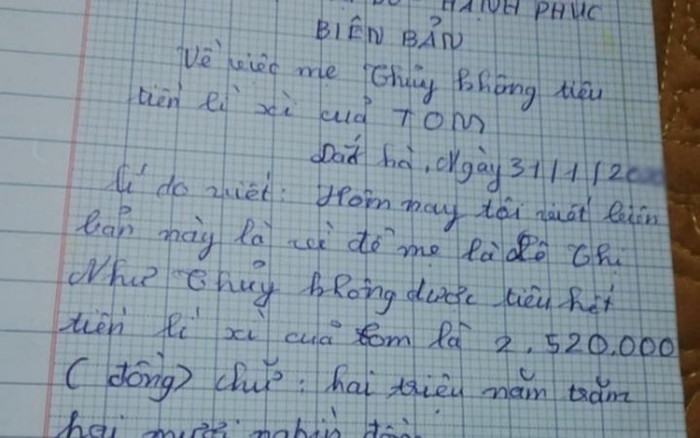 HẠNH PHÚC
BIÊN BẢN
Về việc mẹ Thủy không tiêu
tiền lì xì của TOM
Đắk hà, Ngày 31/1/20
Lí do viết: Hôm nay tôi viết biên
bản này là vì để mẹ là Lê Thị
Như Thủy không được tiêu hết
tiền lì xì của tom là 2.520.000
(đồng) chữ: hai triệu năm trăm
hai mươi nghìn đồng